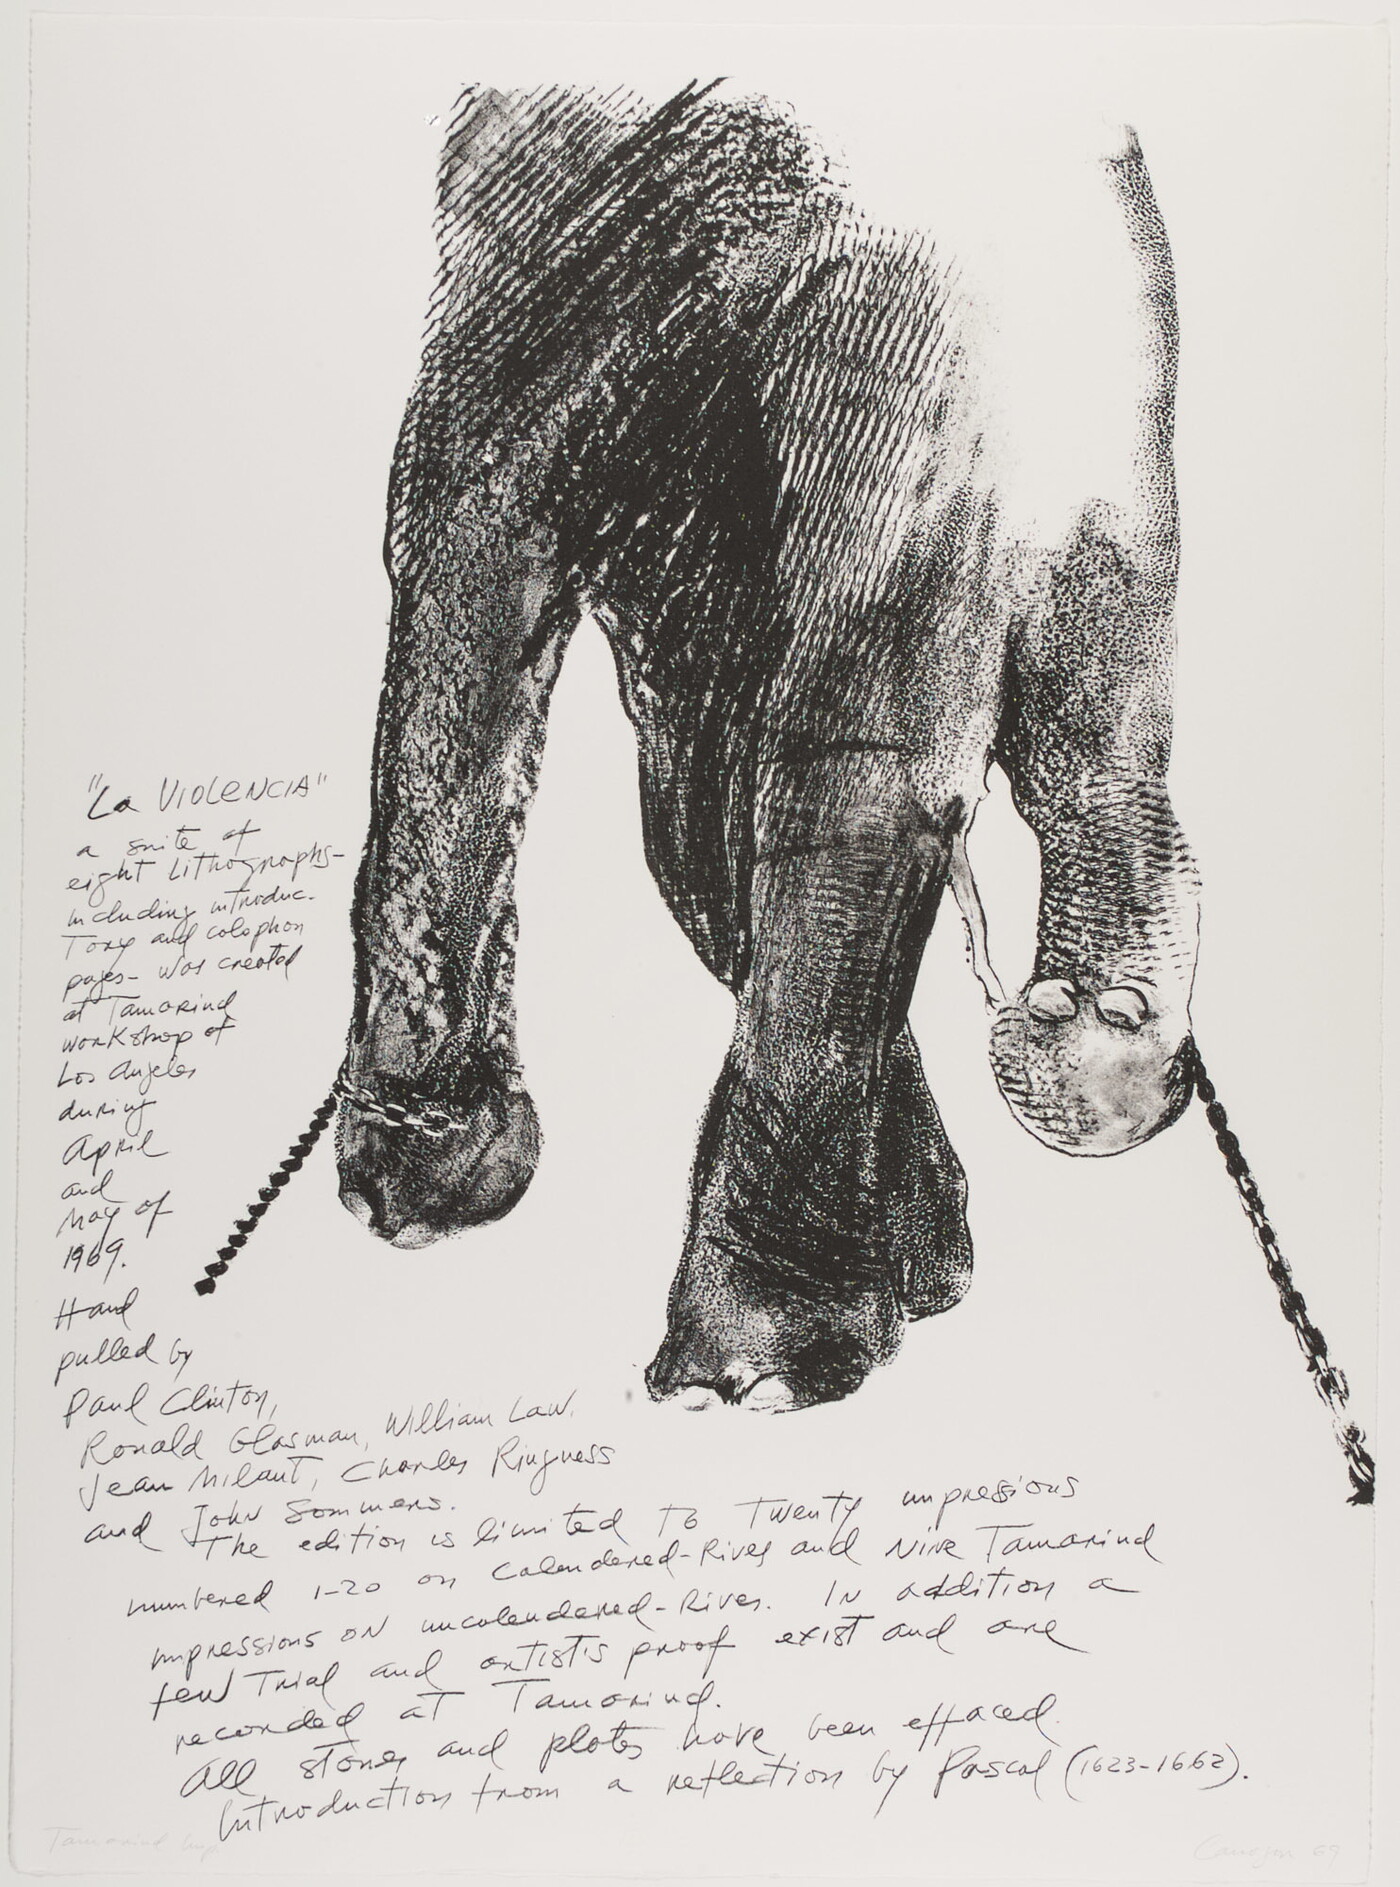 "La VIOLENCIA"
a suite of
eight Lithographs-
including introduc-
Tory and colophon
pages- was created
at Tamarind
workshop of
Los Angeles
during
April
and
May of
1969.
Hand
pulled by
Paul Clinton,
Ronald Glasman, William Law,
Jean Milant, Charles Ringness
and John Sommers.
The edition is limited To Twenty impressions
numbered 1-20 on calendered-Rives and Nine Tamarind
impressions on uncalendered-Rives. In addition a
few Trial and artist's proof exist and are
recorded at Tamarind.
All stones and plates have been effaced.
Introduction from a reflection by Pascal (1623-1662).
Tamarind Imp
Canogar 69